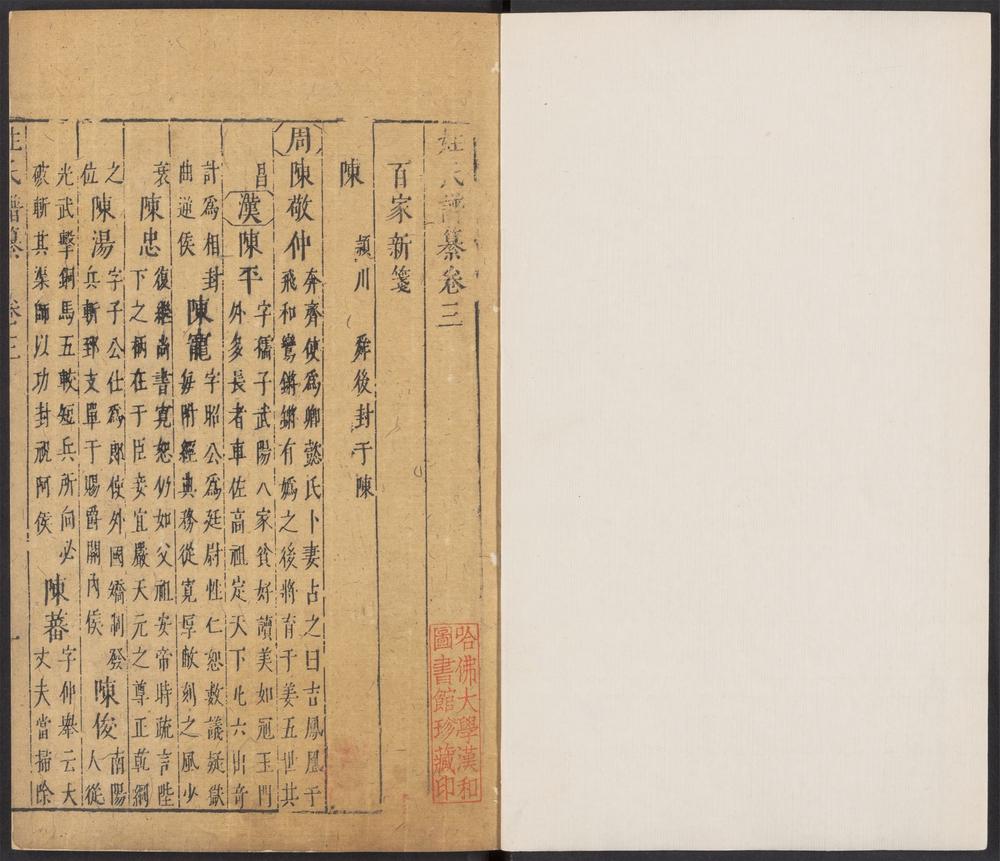 姓氏譜纂卷三
百家新箋
陳 潁川 舜後封于陳
周 陳敬仲 奔齊使為卿懿氏卜妻占之曰吉鳳凰于
飛和鸞鏘鏘有媯之後將育于姜五世其
昌 漢 陳平 字孺子武陽人家貧好讀美如冠玉門
外多長者車佐高祖定天下凡六出奇
計為相封
曲逆侯 陳寵 字昭公為廷尉性仁恕數議疑獄
每附經典務從寬厚敝刻之風少
衰 陳忠 復繼尚書寬恕仍如父祖安帝時疏言陛
下之柄在于臣妾宜嚴天元之尊正乾綱
之
位 陳湯 字子公仕為郎使外國矯制發
兵斬郅支單于賜爵關內侯 陳俊 南陽
人從
光武擊銅馬五較短兵所向必
破斬其渠帥以功封祝阿侯 陳蕃 字仲舉云大
丈夫當掃除
姓氏譜纂 卷三 一
哈佛大學漢和
圖書館珍藏印